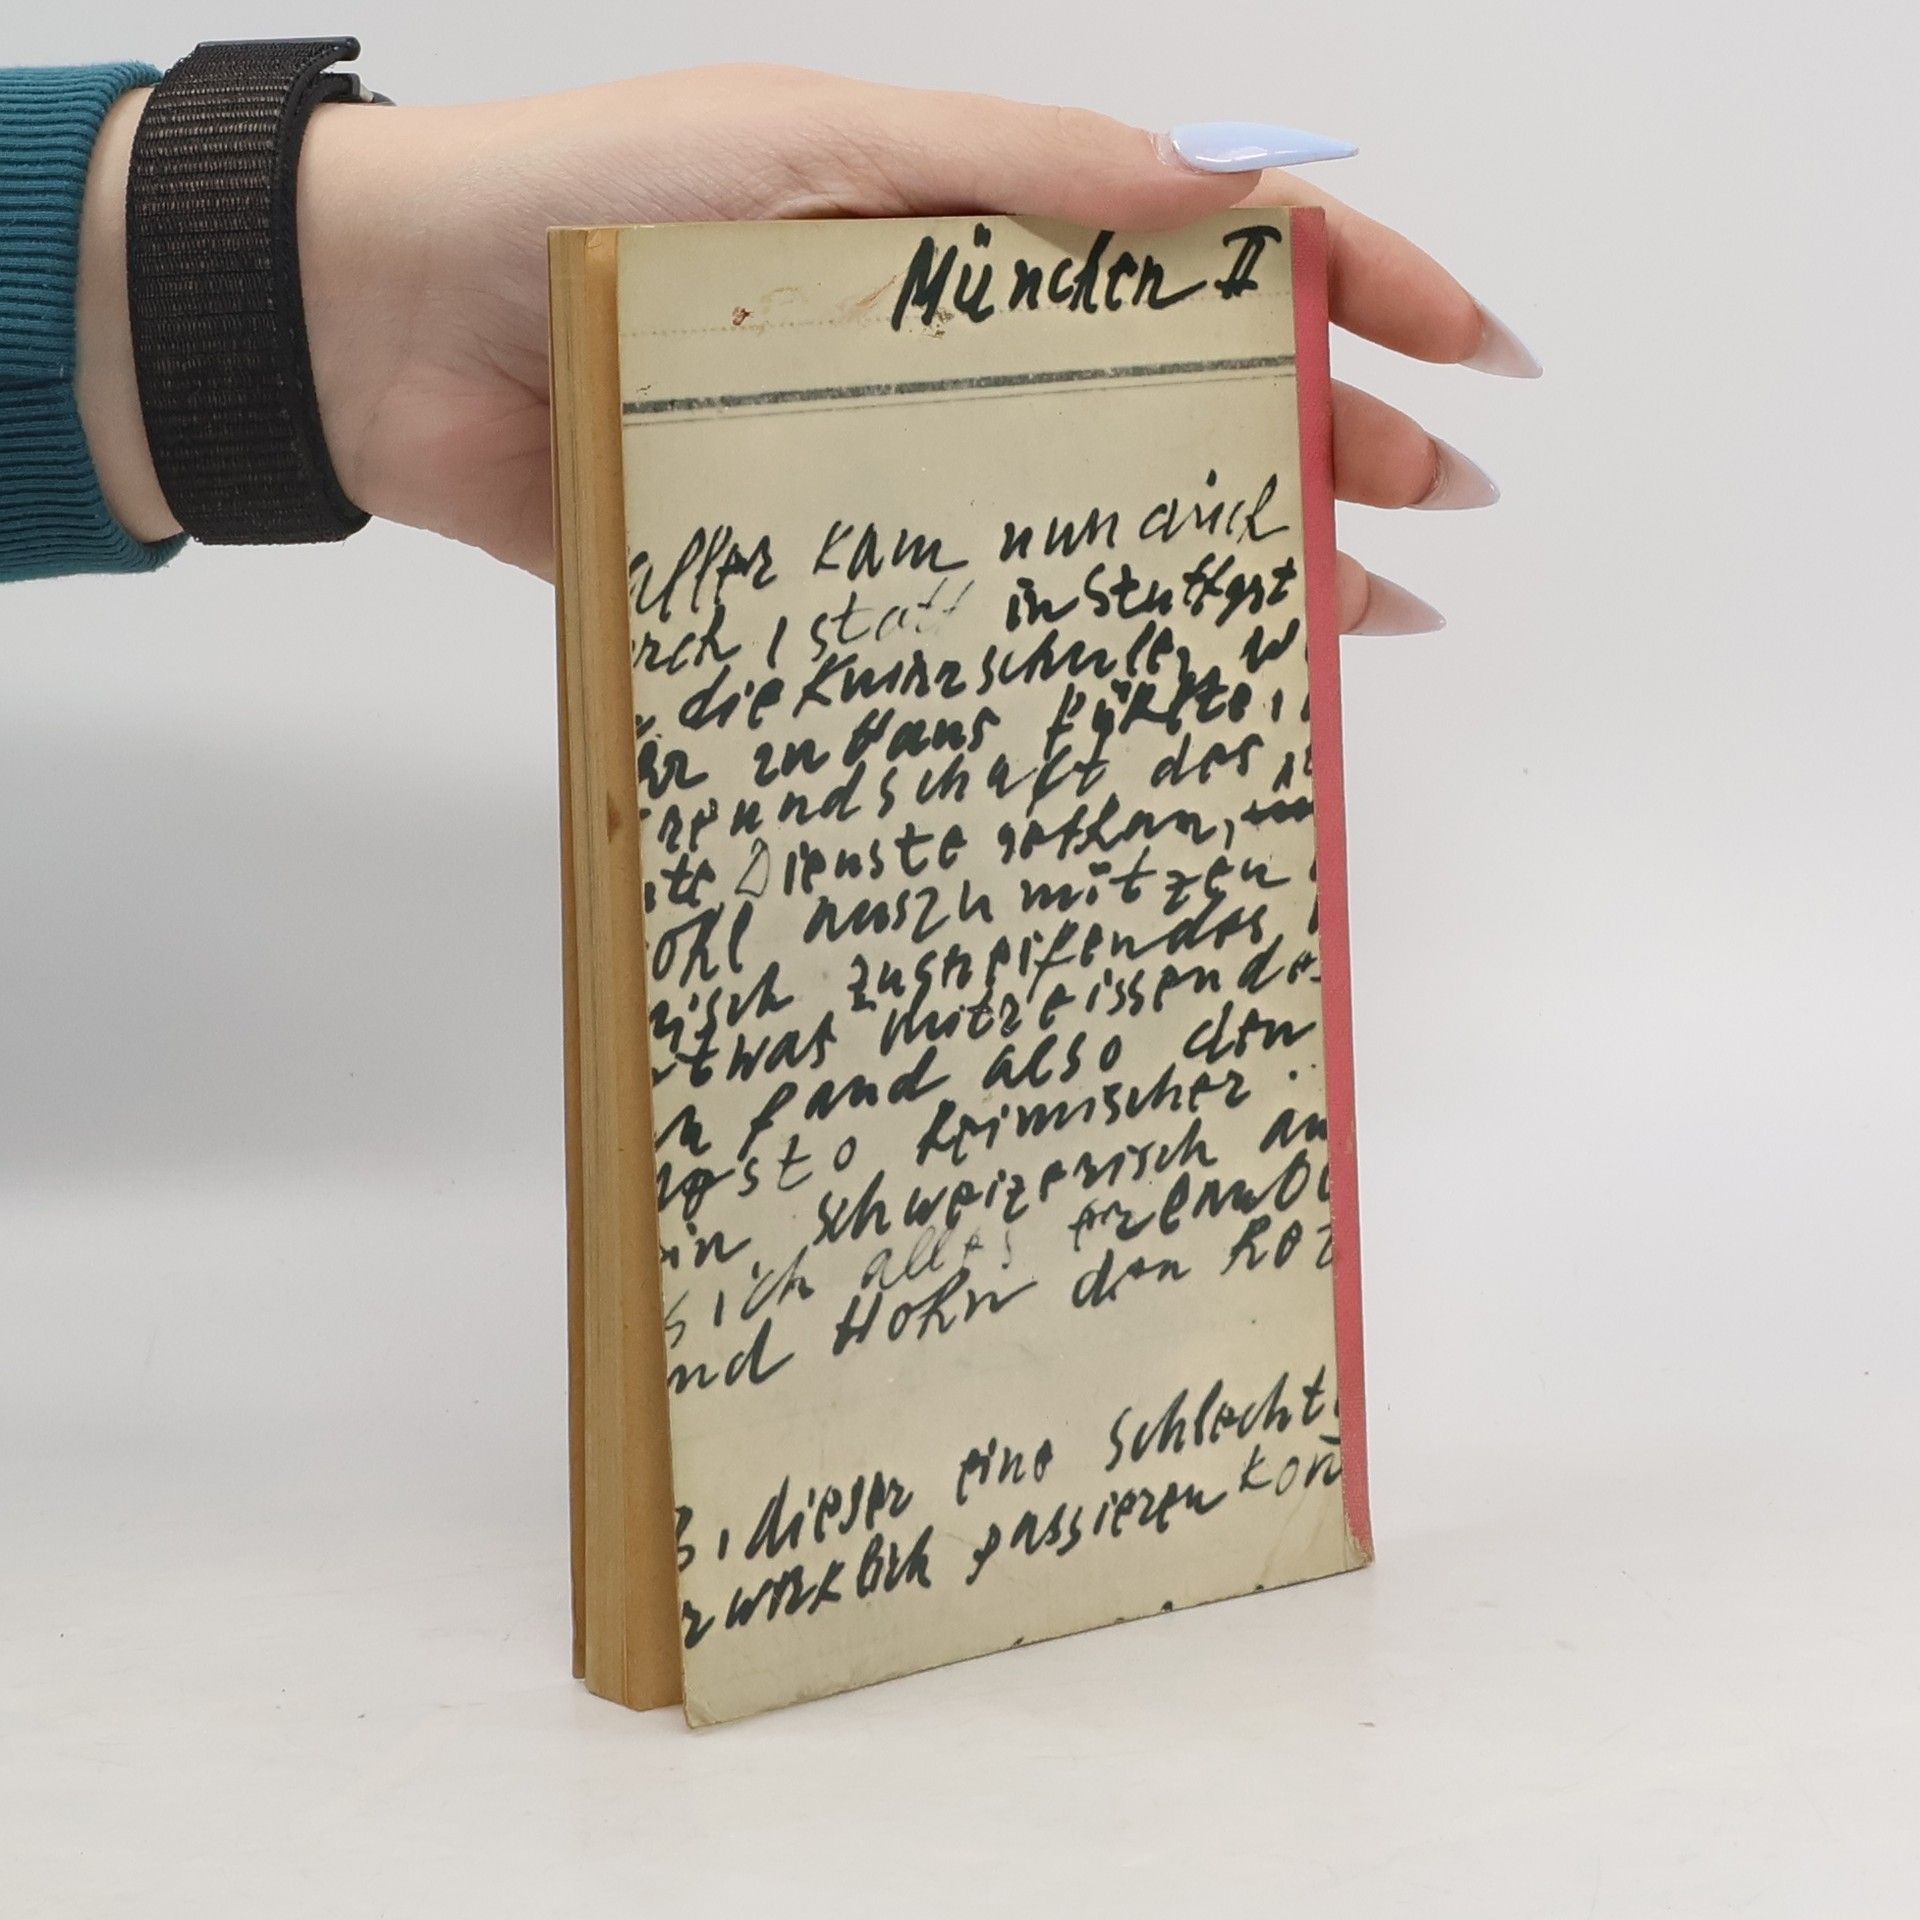 München II
aller kam nun auch
rch, statt in Stuttgart
die Kunzschule, w
zu Haus führte,
reundschaft des
Dienste gethan,
ohl auszunützen
risch zugreifendes
etwas mitreissendes
fand also den
sto heimischer
ein schweizerisch an
sich alles
nd Hohn den
, dieser eine schlecht
r wirklich passieren kon